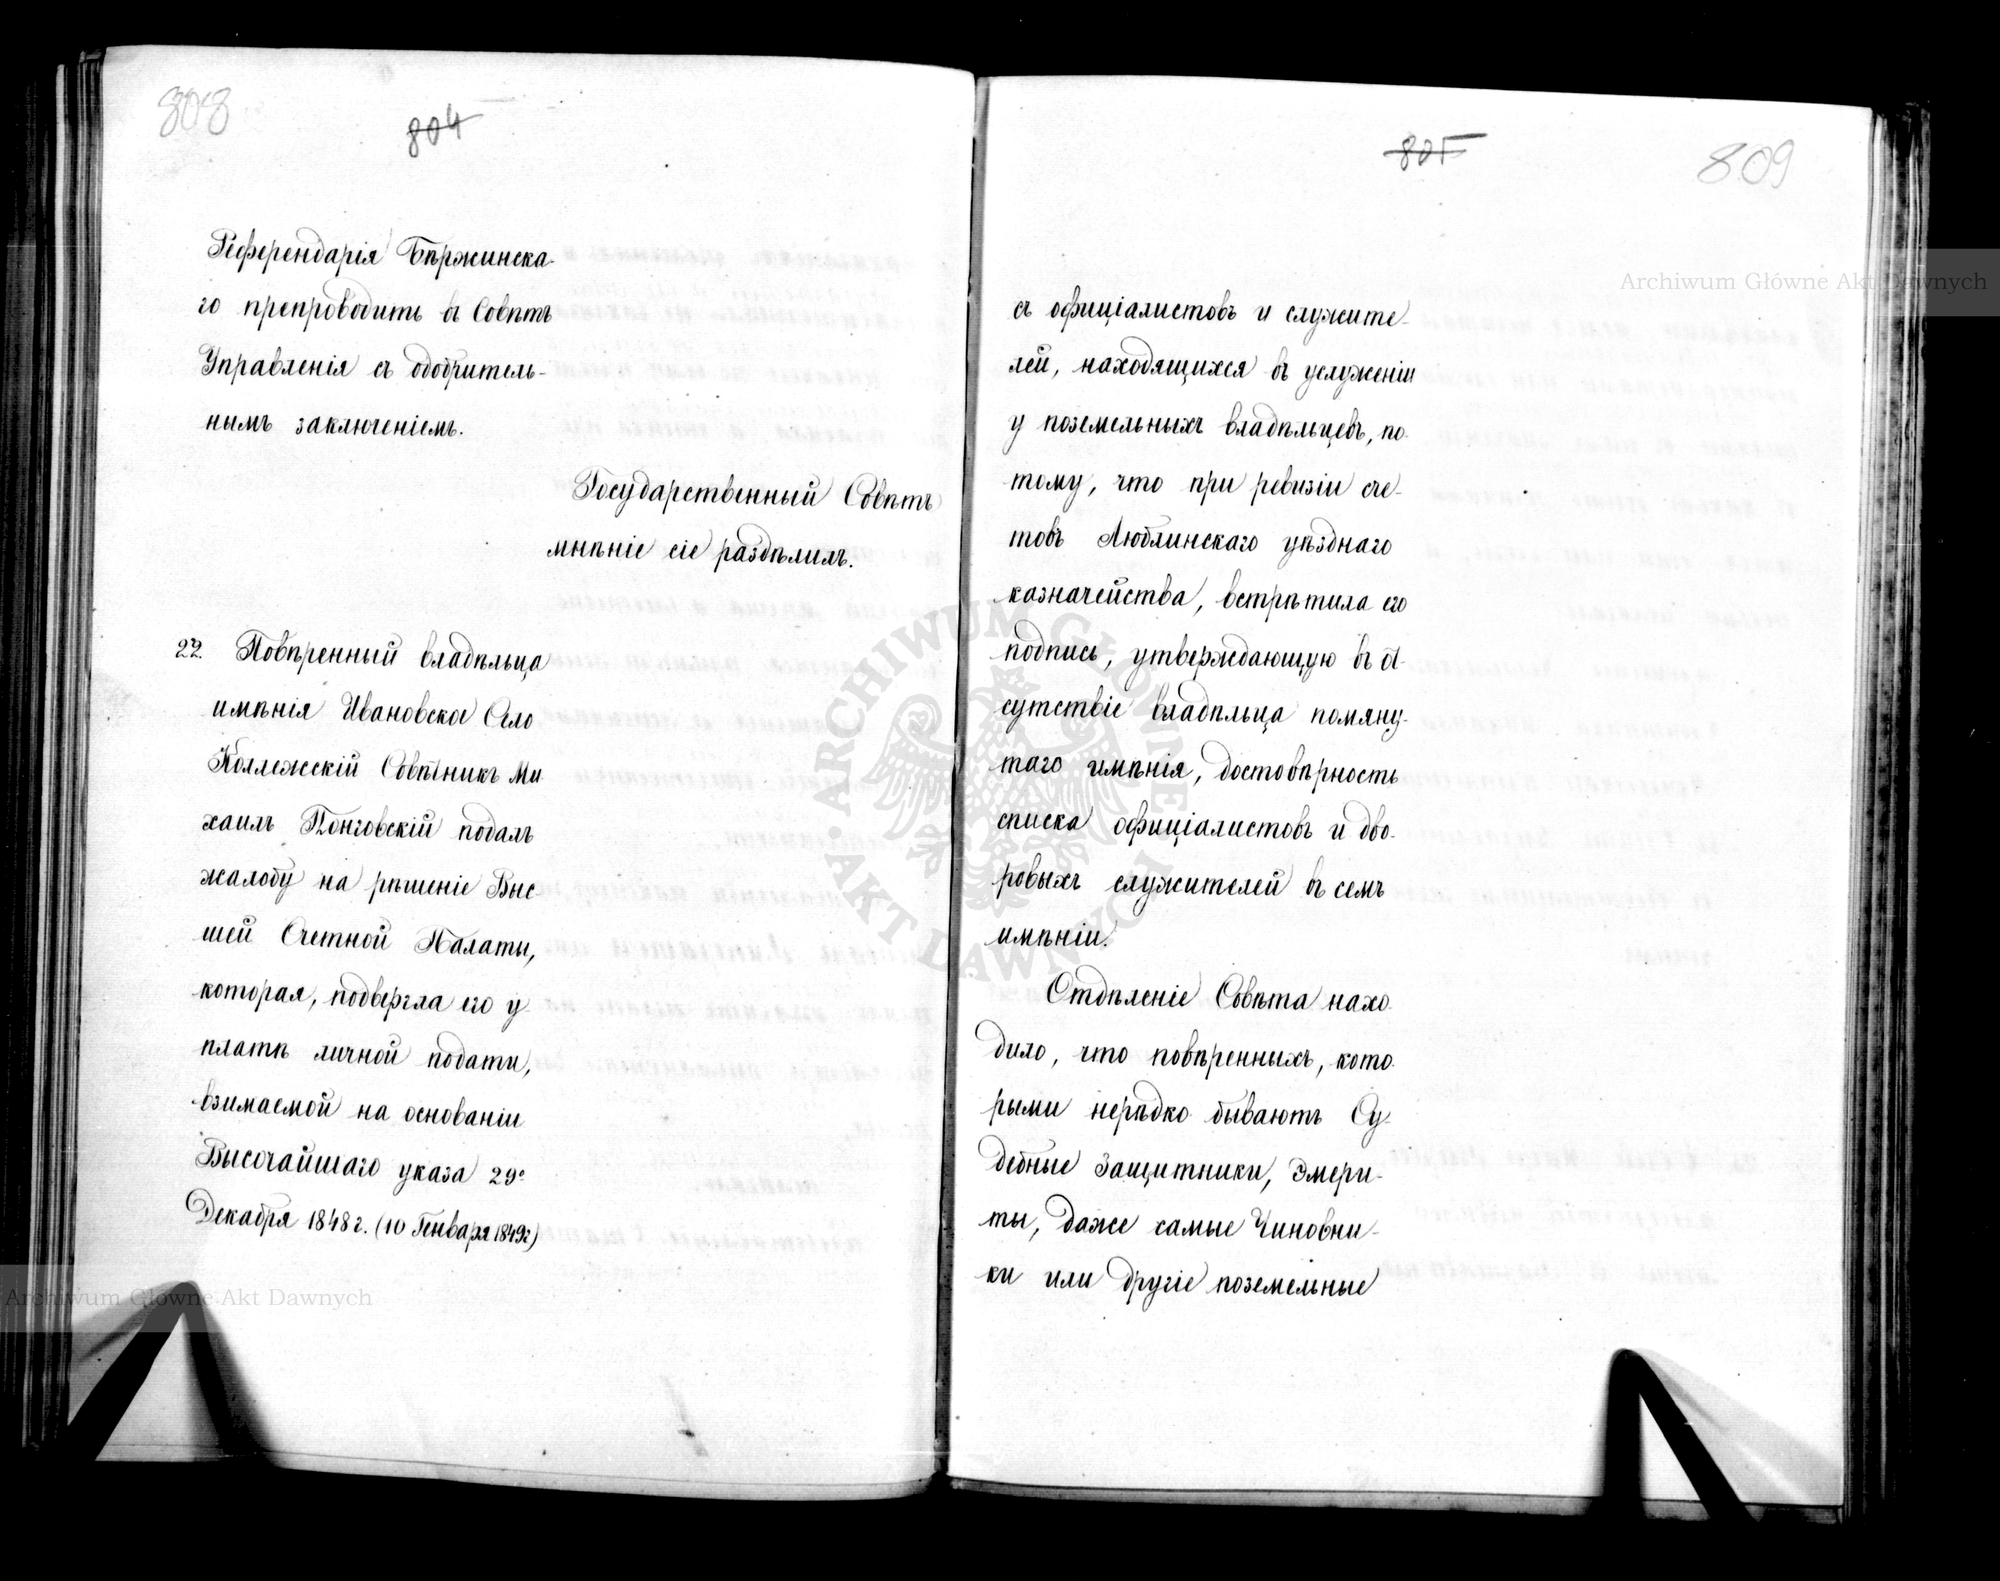 808
804
Референдарія Бѣржинска-
го препроводить въ Совѣтъ
Управленія съ одобритель-
нымъ заключеніемъ.
Государственный Совѣтъ
мнѣніе сіе раздѣлилъ.
22. Повѣренный владѣльца
имѣнія Ивановское Село
Коллежскій Совѣтникъ Ми
хаилъ Понговскій подалъ
жалобу на рѣшеніе Выс-
шей Счетной Палаты,
которая, подвергла его у-
платѣ личной подати,
взимаемой на основаніи
Высочайшаго указа 29го
Декабря 1848 г. (10 Генваря 1849г)
805
809
съ официіалистовъ и служите-
лей, находящихся въ услуженіи
у поземельныхъ владѣльцевъ, по-
тому, что при ревизіи сче-
товъ Люблинскаго уѣзднаго
казначейства, встрѣтила его
подпись, утверждающую въ от-
сутствіе владѣльца помяну-
таго имѣнія, достовѣрность
списка официіалистовъ и дво-
ровыхъ служителей въ семъ
имѣніи.
Отдѣленіе Совѣта нахо-
дило, что повѣренныхъ, кото-
рыми нерѣдко бываютъ Су-
дебные Защитники, Эмери-
ты, даже самые Чиновни-
ки или другіе поземельные
Archiwum Główne Akt Dawnych
Archiwum Główne Akt Dawnych
ARCHIWUM GŁÓWNE AKT DAWNYCH